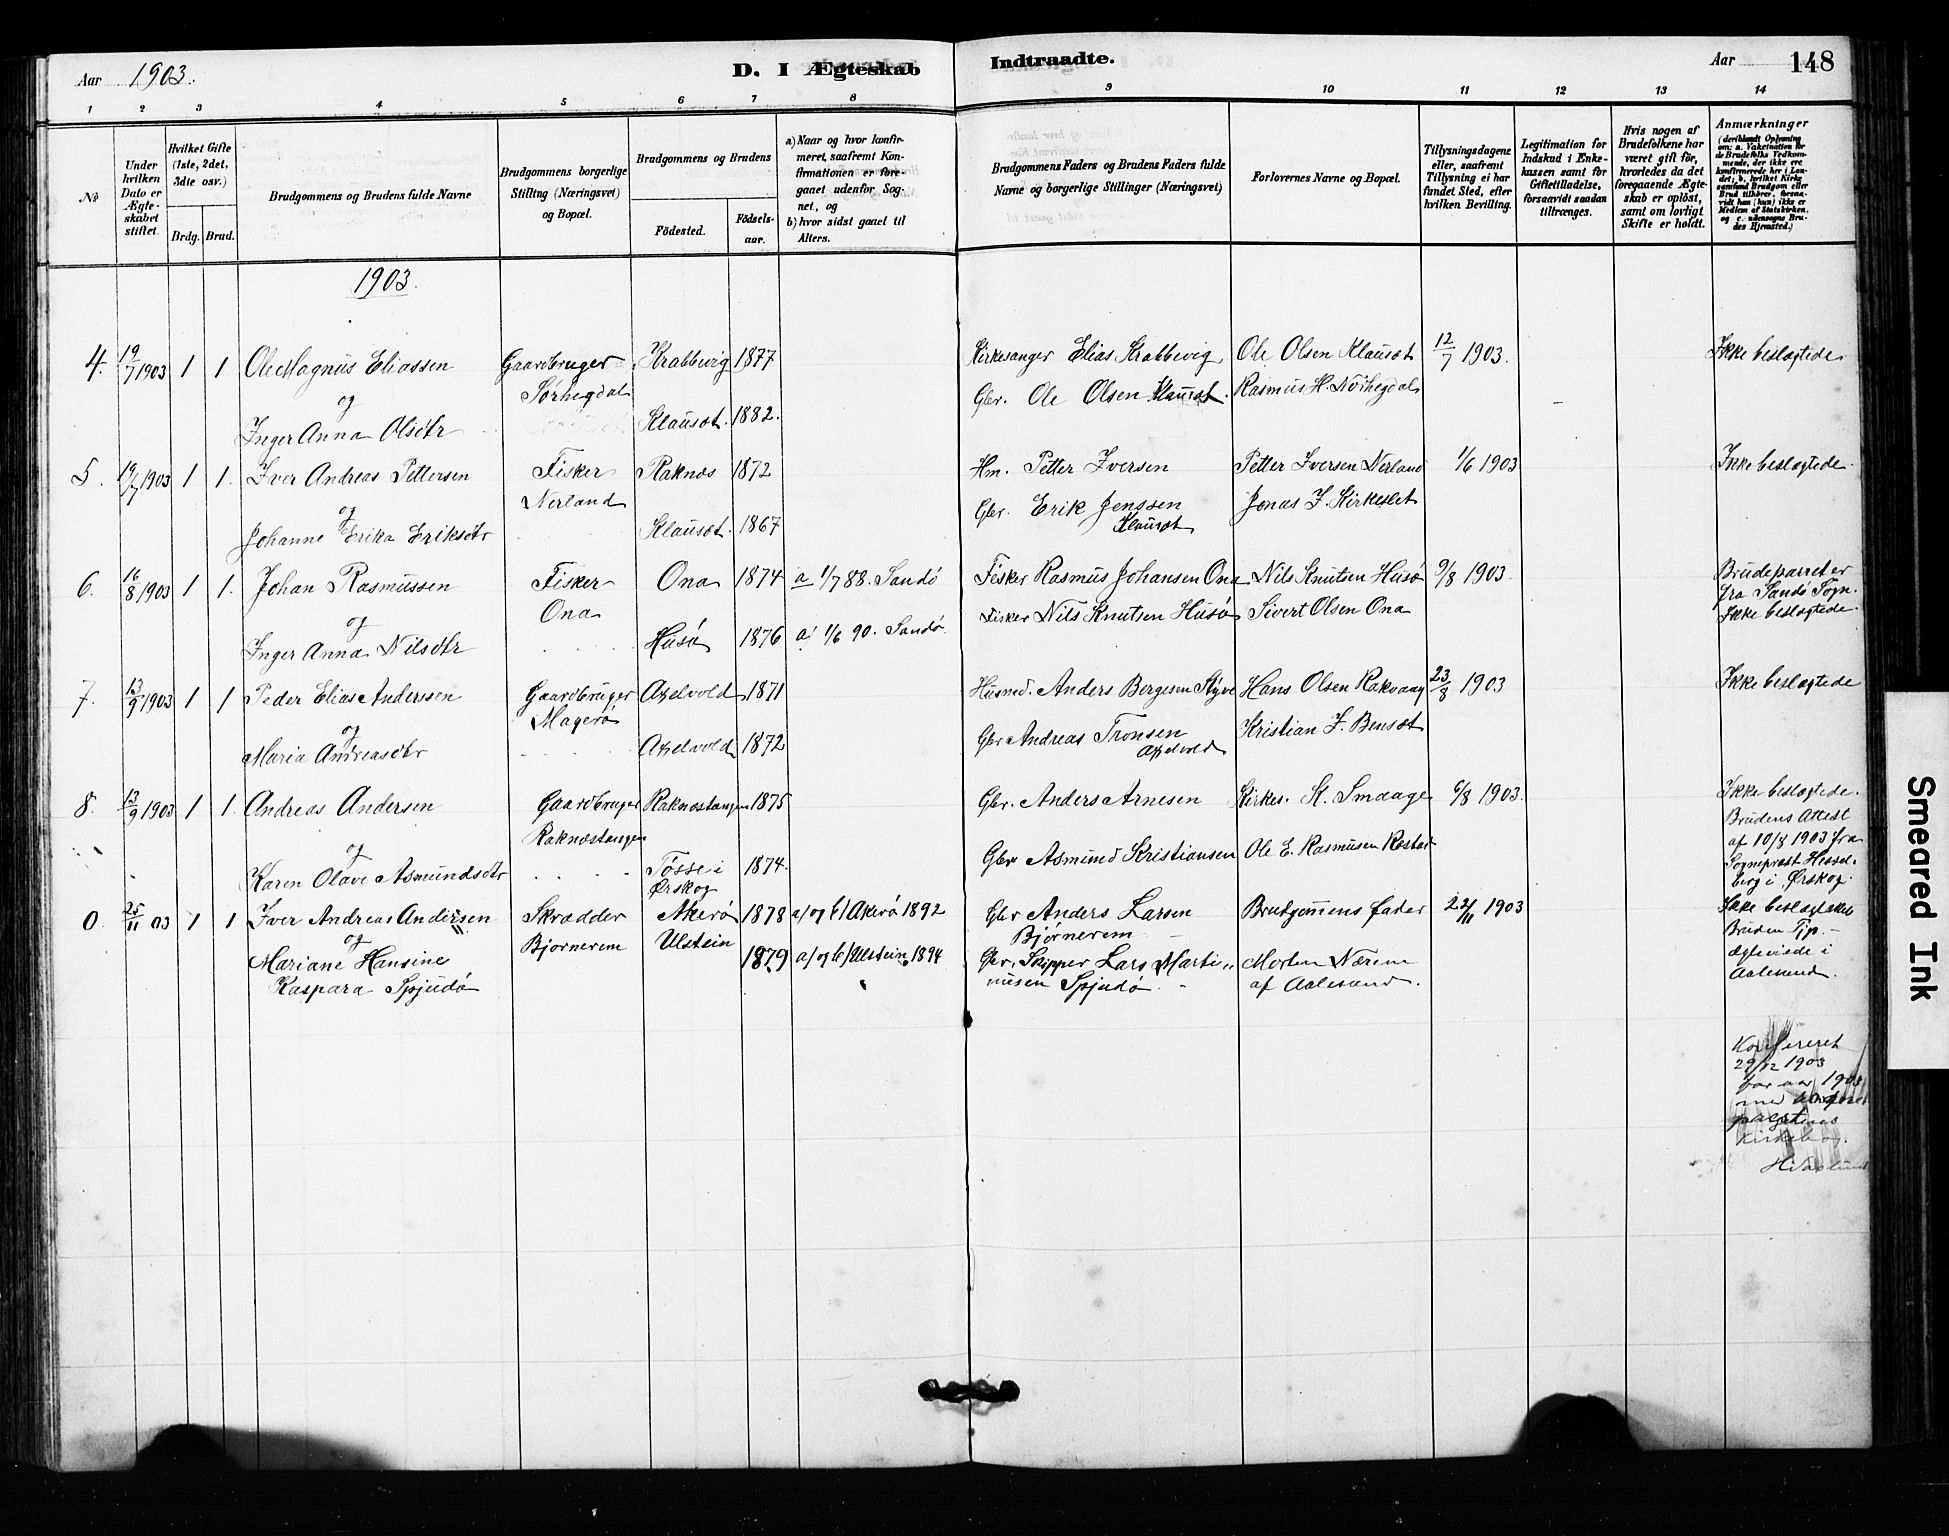 Aar 1903.
D. I Ægteskab
Indtraadte.
Aar
148
1
2
3
4
5
6
7
8
9
10
11
12
13
14
No
Under hvilken Dato er Ægteskabet stiftet.
Hvilket Gifte (1ste, 2det, 3die osv.)
Brdg.
Brud.
Brudgommens og Brudens fulde Navne
Brudgommens borgerlige Stilling (Næringsvei) og Bopæl.
Brudgommens og Brudens
Födested.
Födselsaar.
a) Naar og hvor konfirmeret, saafremt Konfirmationen er foregaaet udenfor Sognet, og
b) hvor sidst gaaet til Alters.
Brudgommens Faders og Brudens Faders fulde Navne og borgerlige Stillinger (Næringsvei)
Forlovernes Navne og Bopæl.
Tillysningsdagene eller, saafremt Tillysning ei har fundet Sted, efter hvilken Bevilling.
Legitimation for Indskud i Enkekassen samt for Giftetilladelse, forsaavidt saadan tiltrænges.
Hvis nogen af Brudefolkene har været gift för, hvorledes da det foregaaende Ægteskab er oplöst, samt om lovligt Skifte er holdt.
Anmærkninger
(deriblandt Oplysning om: a. Vakcination for de Brudefolks Vedkommende, der ikke ere konfirmerede her i Landet; b. hvilket Kirkesamfund Brudgom eller Brud tilhörer, forsaavidt han (hun) ikke er Medlem af Statskirken, og c. udensogns Brudes Hjemsted.)
1903.
4. 19/7 1903 1 1 Ole Magnus Eliassen Gaardbruger Krabbevig 1877 Kirkesanger Elias Krabbevig Ole Olsen Klauset 12/7 1903. Ikke beslægtede
og Sørhegdal Gbr. Ole Olsen Klauset. Rasmus H. Nörhegdal
Inger Anna Olsdtr Klauset. 1882.
5. 19/7 1903 1 1. Iver Andreas Pettersen Fisker Raknes 1872 Hm. Petter Iversen Petter Iversen Nerland 1/6 1903 Ikke beslægtede.
og Nerland Gbr. Erik Jenssen Jonas J. Kirkeslet
Johanne Erika Eriksdtr Klauset. 1867 Klauset
6. 16/8 1903 1 1. Johan Rasmussen Fisker Ona 1874 a 1/7 88. Sandö Fisker Rasmus Johansen Ona Nils Knutsen Husö 9/8 1903. Brudeparret er
og Ona Fisker Nils Knutsen Husö Sivert Olsen Ona fra Sandö Sogn.
Inger Anna Nilsdtr Husö 1876 a) 1/6 90. Sandö. Ikke beslægtede.
7. 13/9 1903 1 1 Peder Elias Anderssen Gaardbruger Axelvold 1871 Husmd. Anders Bergesen Hans Olsen Rakvaag 23/8 1903 Ikke beslægtede
og Magerö Gbr Andreas Tronsen Kristian J. Benset
Maria Andreasdtr Axelvold 1872 Axelvold
8. 13/9 1903 1 1. Andreas Andersen Gaardbruger Raknestangen 1875 Gbr. Anders Arnesen Kirkes. K. Smaage 6/8 1903. Ikke beslægtede.
og Raknestangen Gbr Asmund Kristiansen Ole E. Rasmusen Brudens Attest
Karen Olave Asmundsdtr Tösse i Ørskog 1874. af 10/8 1903 fra
Sogneprest
berg i Ørskog.
25/11 03 1 1 Iver Andreas Andersen Skrædder Akerö 1878 a) og b) Akerö 1892 Gbr Anders Larsen Brudgomens fader 22/11 1903 Ikke beslægtede
og Bjornerem Ulstein Bjørnerem Bruden
Mariane Hansine 1879 a) og b) Ulstein 1894 Gbr, Skipper Lars Marti- Morten Nærem i
Kaspara Spjudö nusen Spjudö. af Aalesund. Aalesund.
Konfereret
29/12 1903
for aar 1903
Smeared Ink